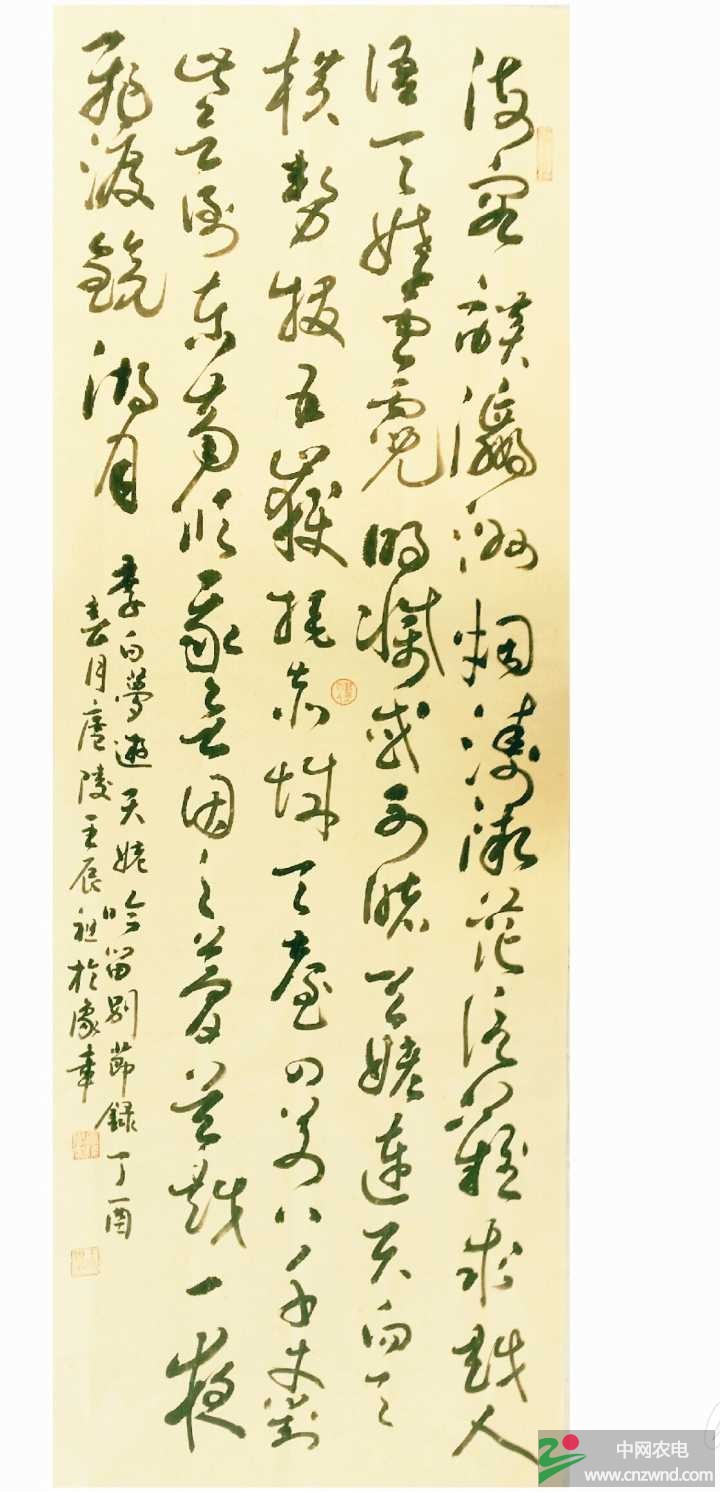 海客談瀛洲烟濤微茫信難求越人
語天姥雲霓明滅或可睹天姥連天向天
橫勢拔五嶽掩赤城天臺四萬八千丈對
此欲倒東南傾我欲因之夢吳越一夜
飛渡鏡湖月
李白夢遊天姥吟留別節錄丁酉
春月廬陵王辰祖於豫章
中网农电
www.cnzwnd.com